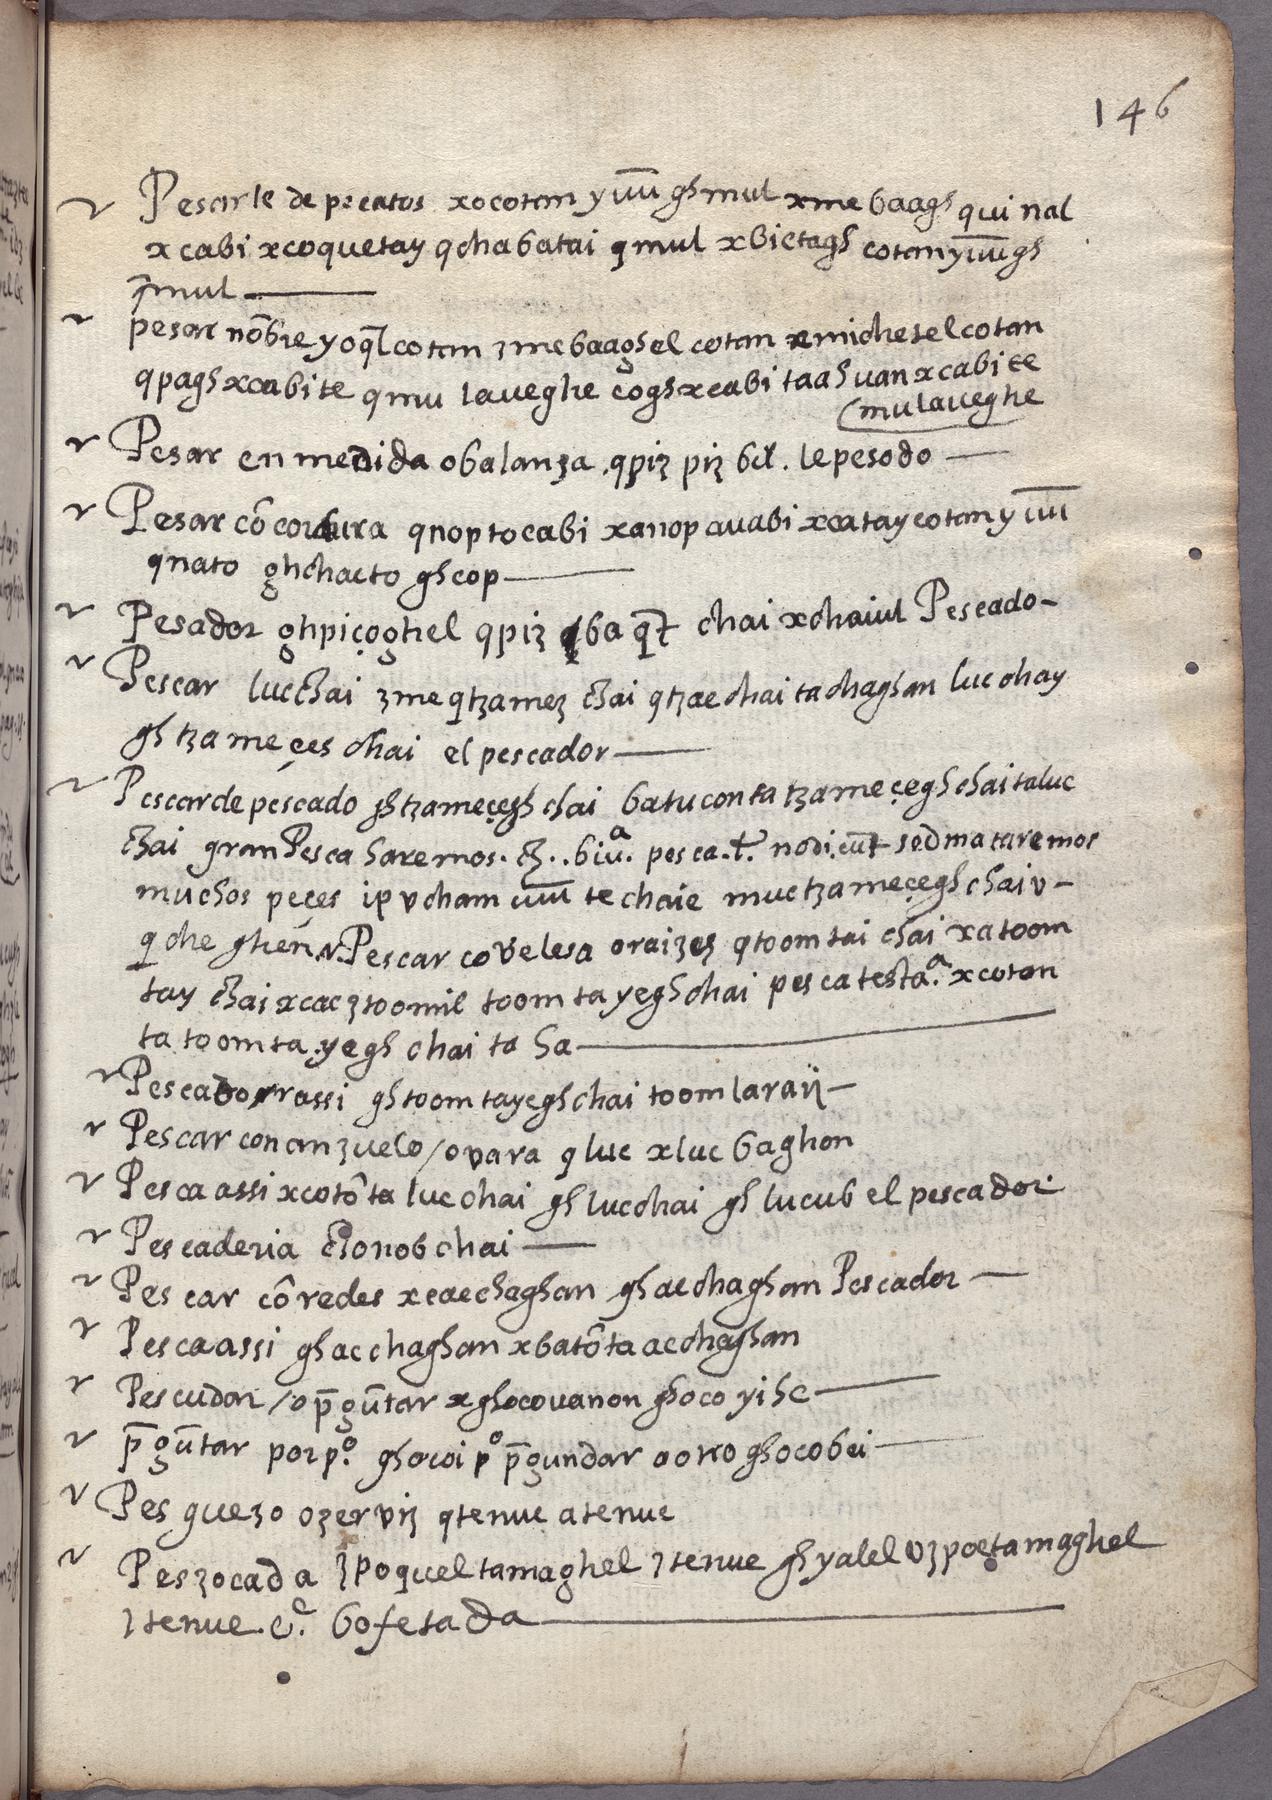 146
Pesarle de pecatos xocotan y uuu ghmul xme baagh qui nal
x cabi xcoquetay qcha batai qmul x bictagh cotan y uuu gh
q̃mul
pesar nõbre yoq̃l cotan ɜme baaghel cotan xmichetel cotan
qpagh xcabi te qmu laueghe coghxcabi taahuan xcabi te
(mulaueghe
Pesar en medida o balanɜa .qpiɜ piɜ bil. le pesodo
Pesar cõ cordura qnoptocabi xanop cuabi xcatay cotan y uuu
qnato ghchacto ghcop
Pesador ghpiçoghel qpiɜ ba chai xchaiul Pescado
Pescar lucchai ɜme qtɜameɜ chai qtɜae chai ta chaghan luc chay
gh tɜameçes chai el pescador
Pescar de pescado ghtɜameçegh chai batu con ta tɜameçegh chai taluc
chai gran Pesca haremos. pesca. nodi sed mataremos
muchos peçes ip vcham uuu te chaie muc tɜameçegh chai v
q che ghen v Pescar co velesa o raiɜes qtoom tai chai xatoom
tay chai xcac ɜtoomil toom ta yegh chai pesca testaª. xcotan
ta toom ta yegh chai ta ha
Pescador assi ghtoom tayegh chai toomlaraij
Pescar con anɜuelo / o vara q luc xluc baghon
Pesca assi xcotõta luc chai gh lucchai gh lucub el pescador
Pescaderia chonob chai
Pescar cõ redes xcaechaghan gh aechaghan Pescador
Pesca assi gh acchaghan xbatõta aechaghan
Pescudar / o p̃gũtar xghocouanon ghoco yihe
p̃gũtar por pº. ghocoi pº p̃gundar a otro ghocobei
Pesgueɜo oɜer viɜ qtenue atenue
Pesɜocada ɜpoquel tamaghel ɜtenue gh yalel vɜ poetamaghel
ɜtenue. &c. bofetada